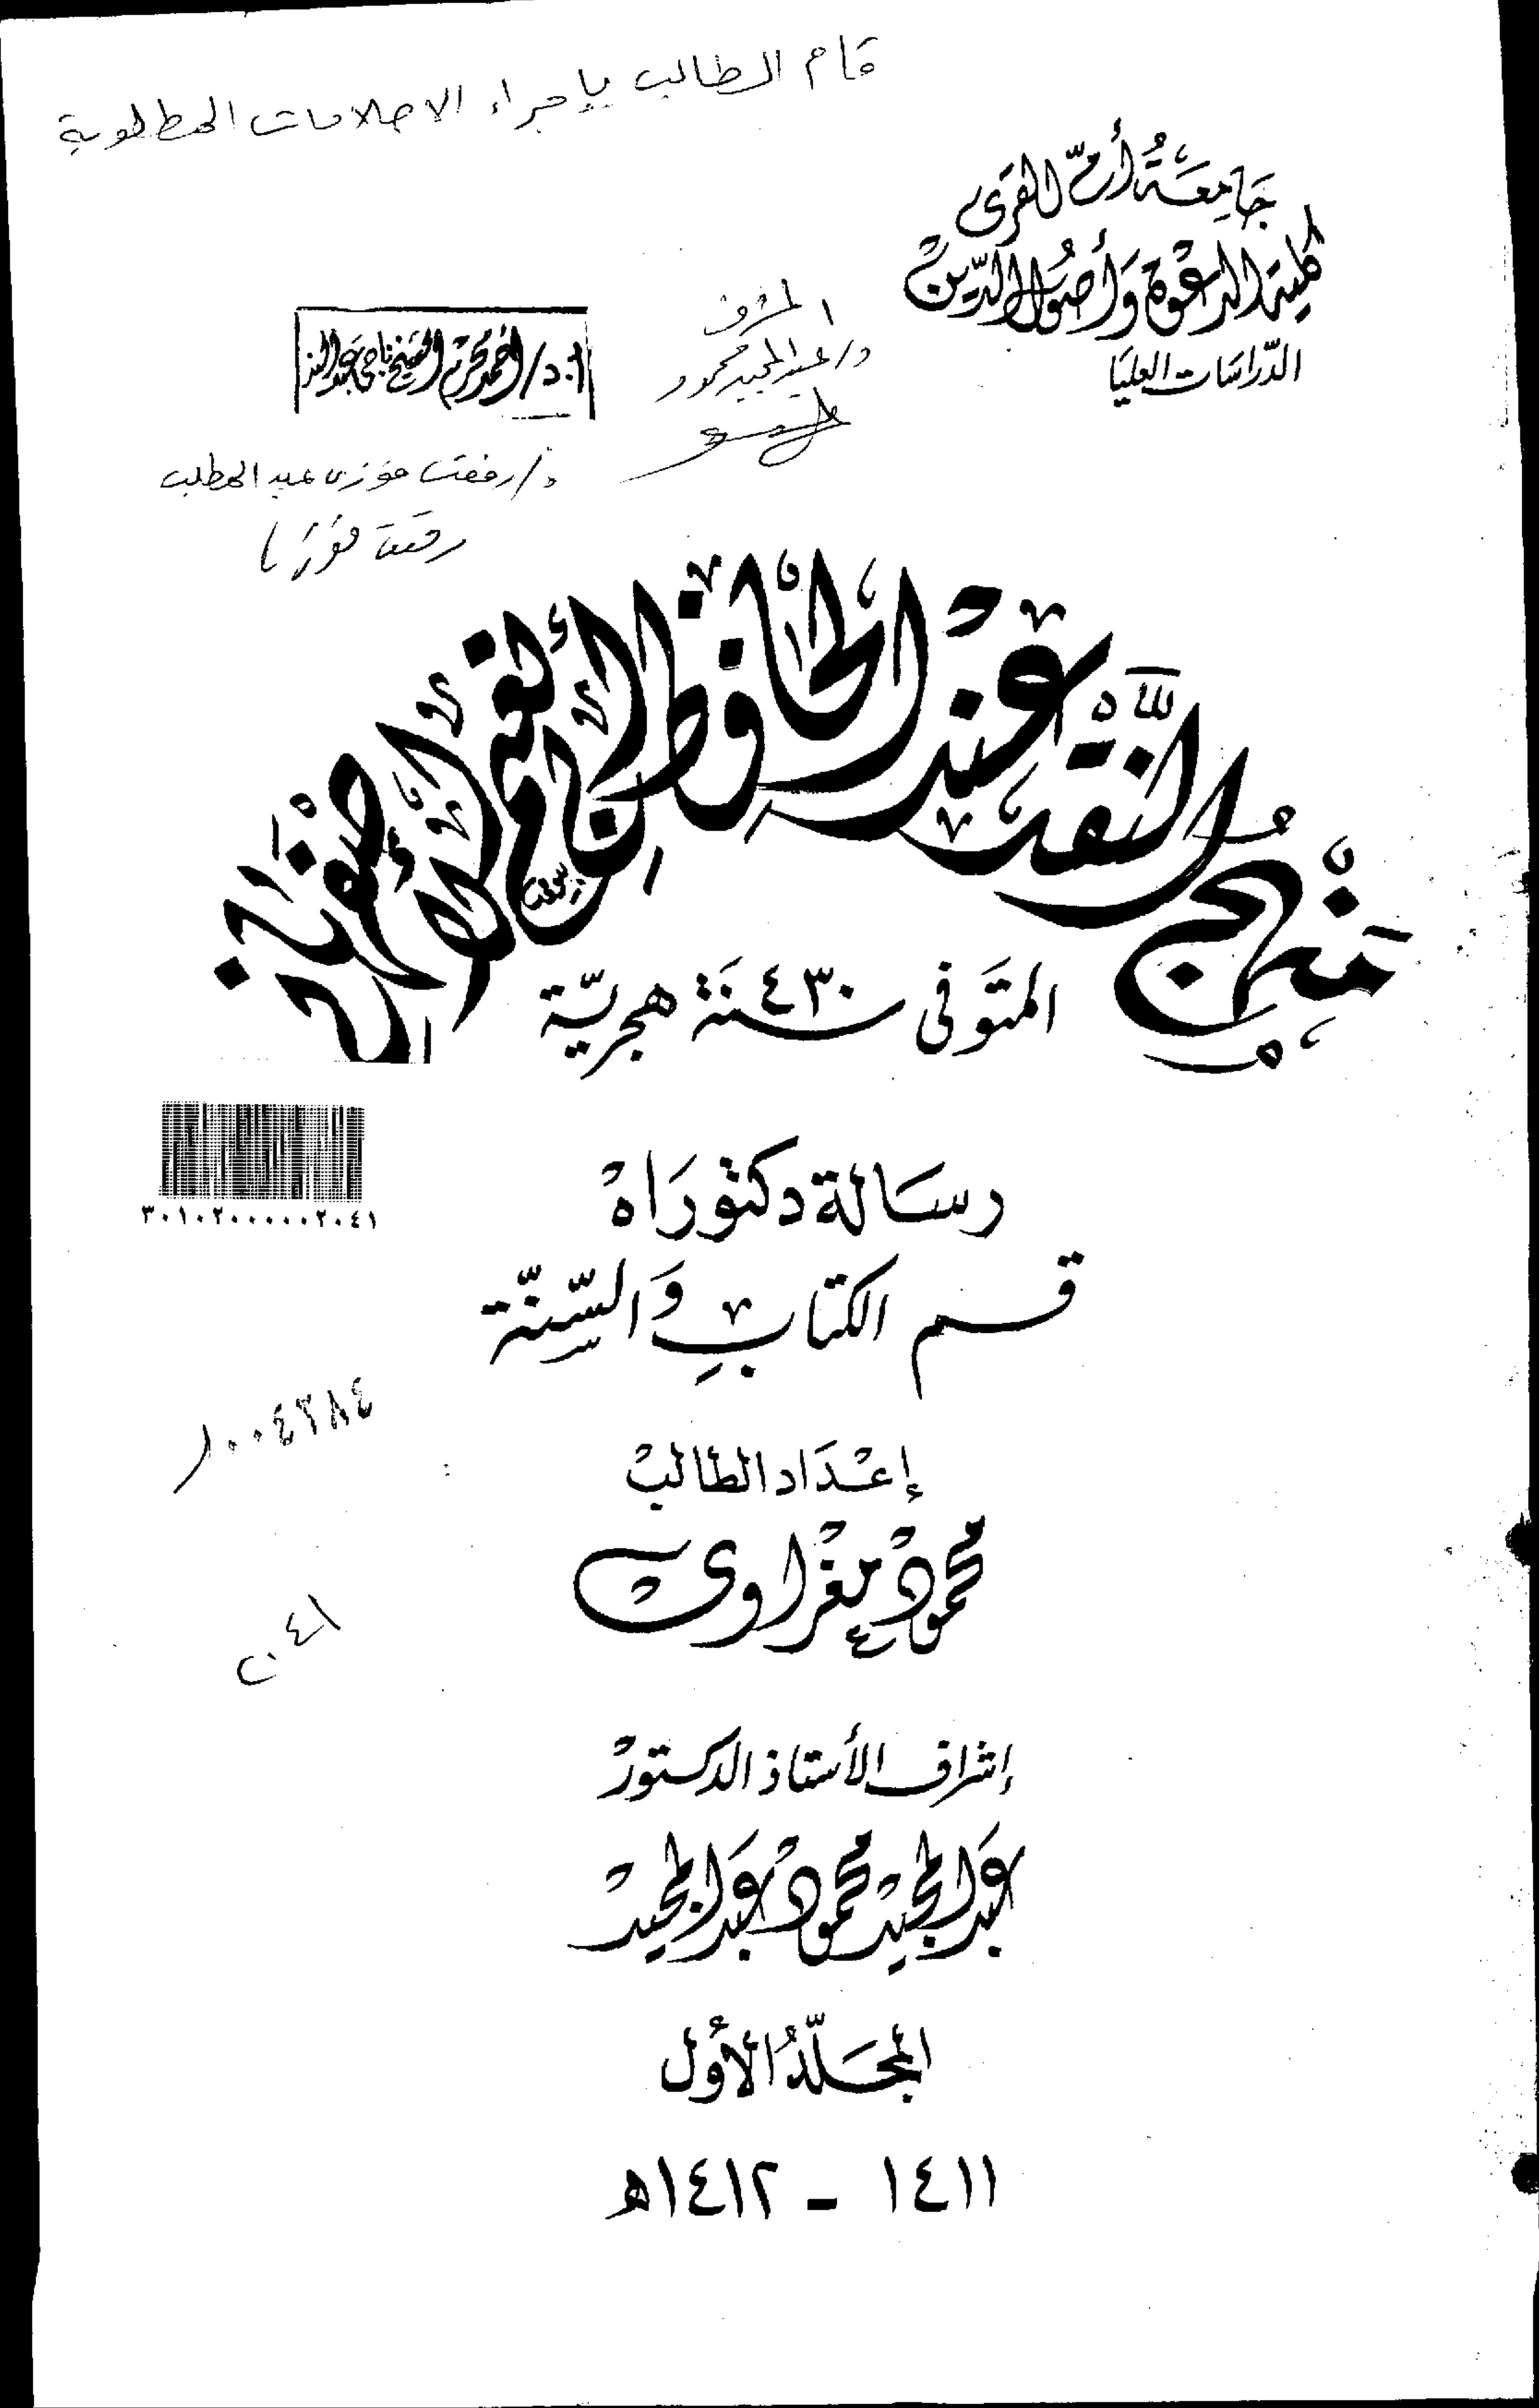 قام الطالب بإجراء الاصلاحات المطلوبة
جَامِعَةُ أُمّ القرَى
كليّة الدعْوة وَأصُول الدّينْ
الدّراسَات العليَا
المشرف
د/ عبد المجيد محمود
أ.د/ أحمد محرم الشيخ ناجي
د/ رفعت فوزى عبد المطلب
رفعت فوزى
مَنْهجُ النَّقد عِنْد الحَافِظ أبي نعيم الأصْفهَاني
المتَوفى سنَة ٤٣٠ هجريّة
٣٠١٠٢٠٠٠٠٠٢٠٤١
رسَالة دكتورَاهْ
قسم الكتابِ وَالسّنّة
١٠٠٤٣٨٤
٢٠٤١
إعْدَاد الطالبْ
محمودْ مغْراوي
إشراف الأستاذ الدكتورْ
عبَد المجيدْ محمودْ عبَد المجيدْ
المجَلّدُ الأوُل
١٤١١ - ١٤١٢هـ